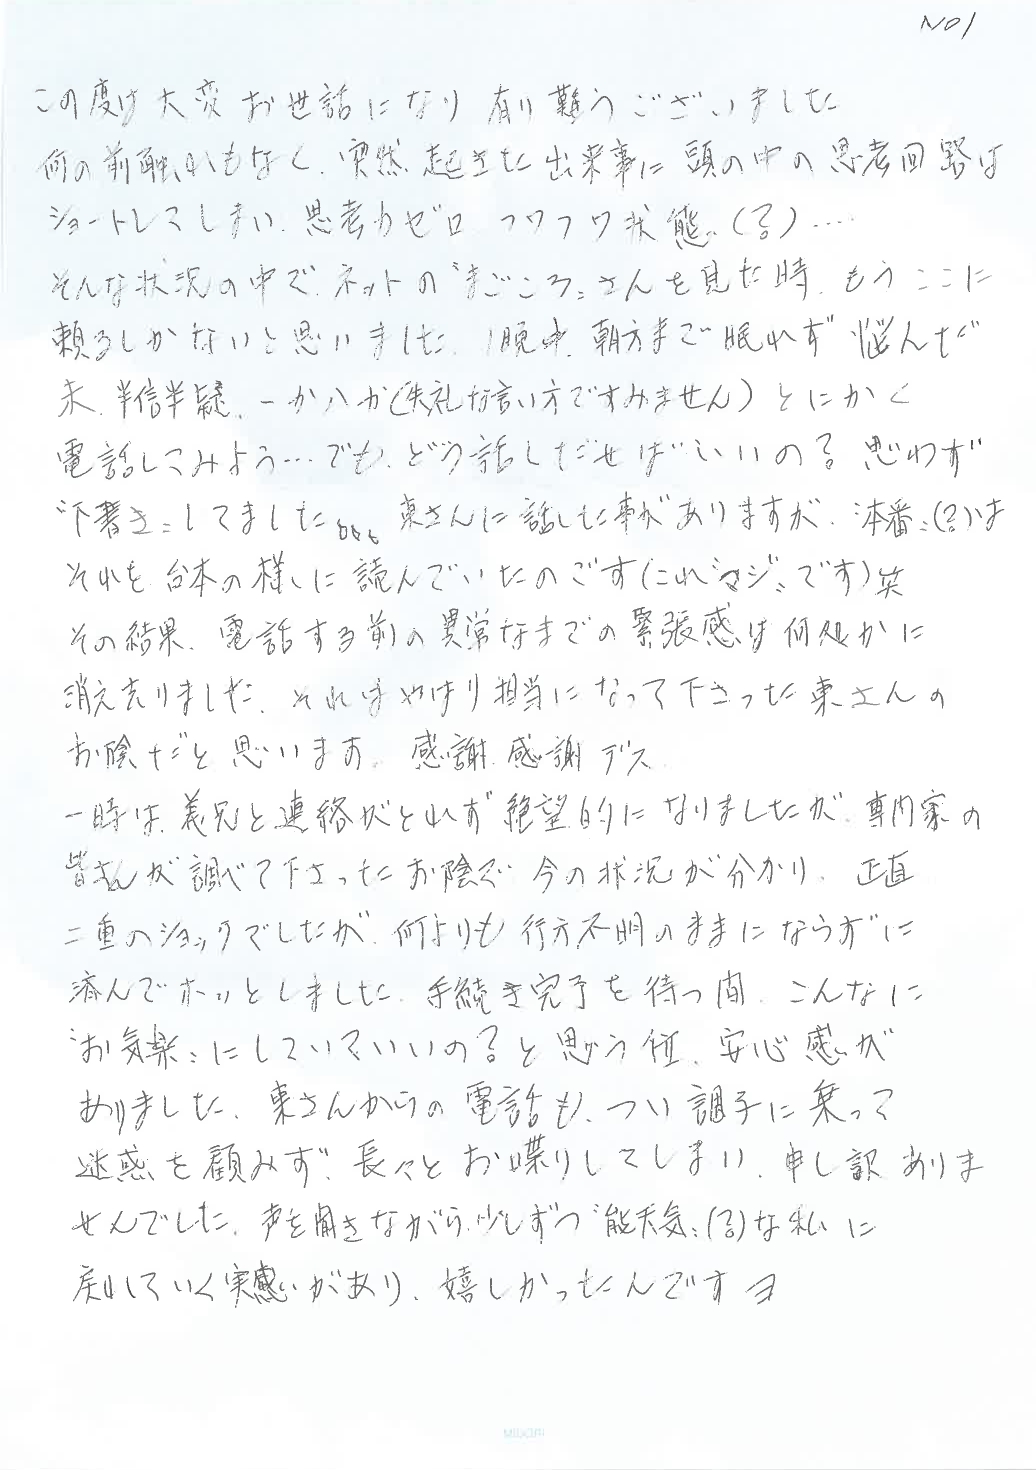 NO1
この度は大変お世話になり有り難うございました
何の前触れもなく、突然起きた出来事に頭の中の思考回路は
ショートしてしまい、思考力ゼロ フワフワ状態(?)…
そんな状況の中で、ネットの〝まごころ〟さんを見た時、もうここに
頼るしかないと思いました。1晩中、朝方まで眠れず悩んだ
末、半信半疑、一か八か(失礼な言い方ですみません)とにかく
電話してみよう…でも、どう話しだせばいいの?思わず
〝下書き〟してました。。。東さんに話した事がありますが、〝本番〟(?)は
それを台本の様に読んでいたのです(これ〝マジ〟です)笑
その結果、電話する前の異常なまでの緊張感は何処かに
消え去りました。それはやはり担当になって下さった東さんの
お陰だと思います。感謝、感謝デス
一時は、義兄と連絡がとれず絶望的になりましたが、専門家の
皆さんが調べて下さったお陰で今の状況が分かり、正直
二重のショックでしたが、何よりも行方不明のままにならずに
済んでホッとしました。手続き完了を待つ間、こんなに
〝お気楽〟にしていていいの?と思う位、安心感が
ありました。東さんからの電話も、つい調子に乗って
迷惑を顧みず、長々とお喋りしてしまい、申し訳ありま
せんでした。声を聞きながら、少しずつ〝能天気〟(?)な私に
戻れていく実感があり、嬉しかったんですヨ
MIDORI